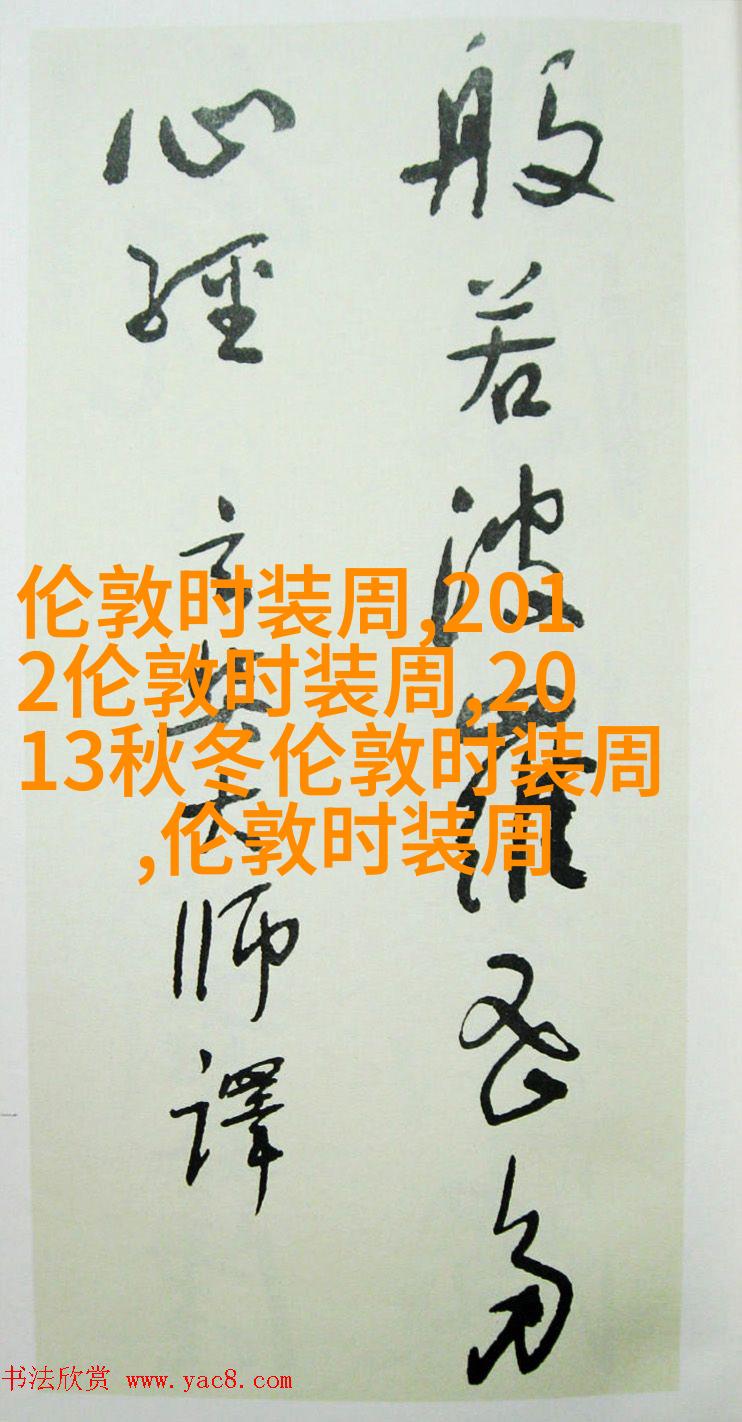 般若波羅密多
心經 玄奘大師譯
伦敦时装周,201
2伦敦时装周,20
13秋冬伦敦时装周
,伦敦时装周
书法欣赏 www.yac8.com